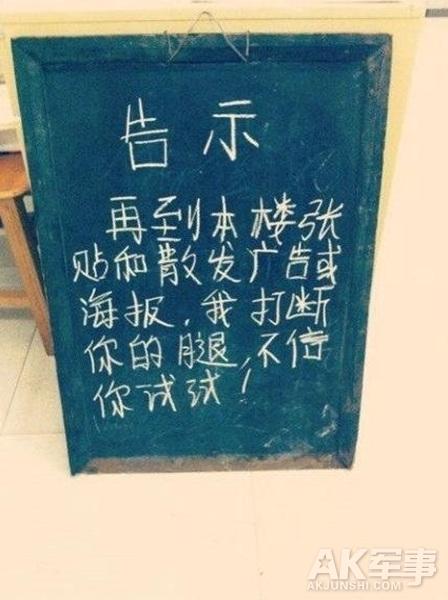 告示
再到本楼张
贴和散发广告或
海报,我打断
你的腿,不信
你试试!
AK军事
AKJUNSHI.COM